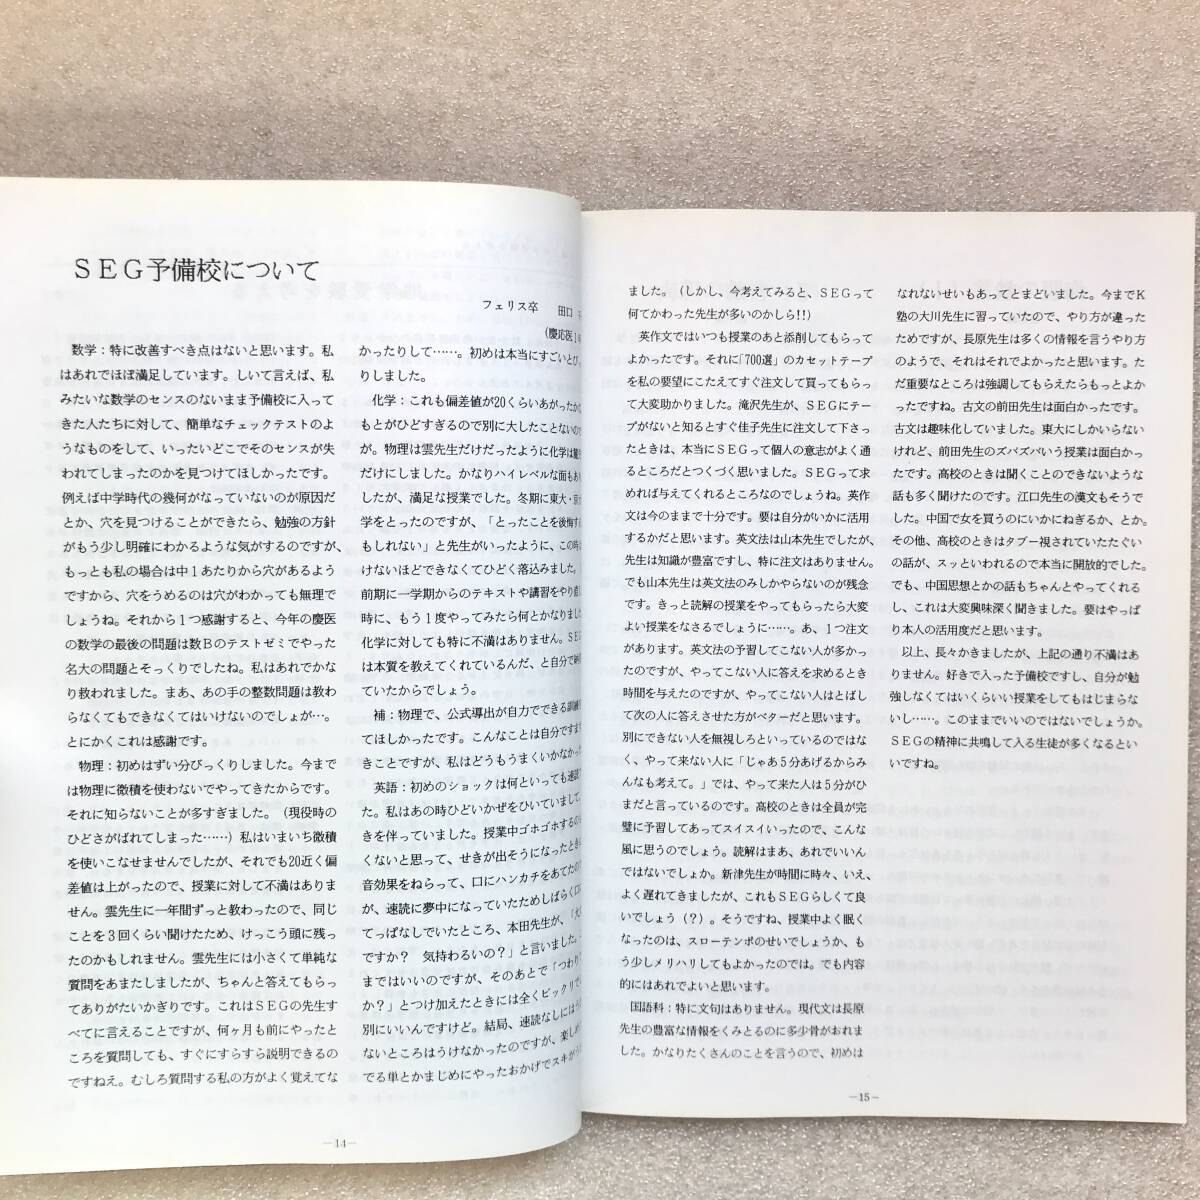 SEG予備校について
フェリス卒　田口
(慶応医1
数学：特に改善すべき点はないと思います。私
はあれでほぼ満足しています。しいて言えば、私
みたいな数学のセンスのないまま予備校に入って
きた人たちに対して、簡単なチェックテストのよ
うなものをして、いったいどこでそのセンスが失
われてしまったのかを見つけてほしかったです。
例えば中学時代の幾何がなっていないのが原因だ
とか、穴を見つけることができたら、勉強の方針
がもう少し明確にわかるような気がするのですが、
もっとも私の場合は中1あたりから穴があるよう
ですから、穴をうめるのは穴がわかっても無理で
しょうね。それから1つ感謝すると、今年の慶医
の数学の最後の問題は数Bのテストゼミでやった
名大の問題とそっくりでしたね。私はあれでかな
り救われました。まあ、あの手の整数問題は教わ
らなくてもできなくてはいけないのでしょが…。
とにかくこれは感謝です。
物理：初めはずい分びっくりしました。今まで
は物理に微積を使わないでやってきたからです。
それに知らないことが多すぎました。（現役時の
ひどさがばれてしまった……）私はいまいち微積
を使いこなせませんでしたが、それでも20近く偏
差値は上がったので、授業に対して不満はありま
せん。雲先生に一年間ずっと教わったので、同じ
ことを3回くらい聞けたため、けっこう頭に残っ
たのかもしれません。雲先生には小さくて単純な
質問をあまたしましたが、ちゃんと答えてもらっ
てありがたいかぎりです。これはSEGの先生す
べてに言えることですが、何ヶ月も前にやったと
ころを質問しても、すぐにすらすら説明できるの
ですねえ。むしろ質問する私の方がよく覚えてな
かったりして……。初めは本当にすごいとび
りしました。
化学：これも偏差値が20くらいあがったか
もとがひどすぎるので別に大したことない
が、物理は雲先生だけだったように化学は
だけにしました。かなりハイレベルな面もあ
したが、満足な授業でした。冬期に東大・
学をとったのですが、「とったことを後悔す
もしれない」と先生がいったように、この時
けないほどできなくてひどく落込みました。
前期に一学期からのテキストや講習をやり直
時に、もう1度やってみたら何とかなりまし
化学に対しても特に不満はありません。SE
は本質を教えてくれているんだ、と自分で納
ていたからでしょう。
補：物理で、公式導出が自力でできる訓練
てほしかったです。こんなことは自分です
きことですが、私はどうもうまくいかなかっ
英語：初めのショックは何といっても速読
た。私はあの時ひどいかぜをひいていまして、
きを伴っていました。授業中ゴホゴホするの
くないと思って、せきが出そうになったときに
音効果をねらって、口にハンカチをあてたの
が、速読に夢中になっていたためしばらく口
てっぱなしでいたところ、本田先生が、「大
ですか？　気持わるいの？」と言いました。
まではいいのですが、そのあとで「つわり
か？」とつけ加えたときには全くビックリで
別にいいんですけど。結局、速読なしには
ないところはうけなかったのですが、楽し
でる単とかまじめにやったおかげでスキが
－14－
ました。（しかし、今考えてみると、SEGって
何てかわった先生が多いのかしら!!）
英作文ではいつも授業のあと添削してもらって
よかったです。それに「700選」のカセットテープ
を私の要望にこたえてすぐ注文して買ってもらっ
て大変助かりました。滝沢先生が、SEGにテー
プがないと知るとすぐ佳子先生に注文して下さっ
たときは、本当にSEGって個人の意志がよく通
るところだとつくづく思いました。SEGって求
めれば与えてくれるところなのでしょうね。英作
文は今のままで十分です。要は自分がいかに活用
するかだと思います。英文法は山本先生でしたが、
先生は知識が豊富ですし、特に注文はありません。
でも山本先生は英文法のみしかやらないのが残念
です。きっと読解の授業をやってもらったら大変
よい授業をなさるでしょうに……。あ、1つ注文
があります。英文法の予習してこない人が多かっ
たのですが、やってこない人に答えを求めるとき
時間を与えたのですが、やってこない人はとばし
て次の人に答えさせた方がベターだと思います。
別にできない人を無視しろといっているのではな
く、やって来ない人に「じゃあ5分あげるからみ
んなも考えて。」では、やって来た人は5分がひ
まだと言っているのです。高校のときは全員が完
璧に予習してあってスイスイいったので、こんな
風に思うのでしょう。読解はまあ、あれでいいん
ではないでしょか。新津先生が時間に時々、いえ、
よく遅れてきましたが、これもSEGらしくて良
いでしょう（？）。そうですね、授業中よく眠く
なったのは、スローテンポのせいでしょうか、も
う少しメリハリしてもよかったのでは。でも内容
的にはあれでよいと思います。
国語科：特に文句はありません。現代文は長原
先生の豊富な情報をくみとるのに多少骨がおれま
した。かなりたくさんのことを言うので、初めは
なれないせいもあってとまどいました。今までK
塾の大川先生に習っていたので、やり方が違った
ためですが、長原先生は多くの情報を言うやり方
のようで、それはそれでよかったと思います。た
だ重要なところは強調してもらえたらもっとよか
ったですね。古文の前田先生は面白かったです。
古文は趣味化していました。東大にしかいらない
けれど、前田先生のズバズバいう授業は面白かっ
たです。高校のときは聞くことのできないような
話も多く聞けたのです。江口先生の漢文もそうで
した。中国で女を買うのにいかにねぎるか、とか。
その他、高校のときはタブー視されていたたぐい
の話が、スッといわれるので本当に開放的でした。
でも、中国思想とかの話もちゃんとやってくれる
し、これは大変興味深く聞きました。要はやっぱ
り本人の活用度だと思います。
以上、長々かきましたが、上記の通り不満はあ
りません。好きで入った予備校ですし、自分が勉
強しなくてはいくらいい授業をしてもはじまらな
いし……。このままでいいのではないでしょうか。
SEGの精神に共鳴して入る生徒が多くなるとい
いですね。
－15－